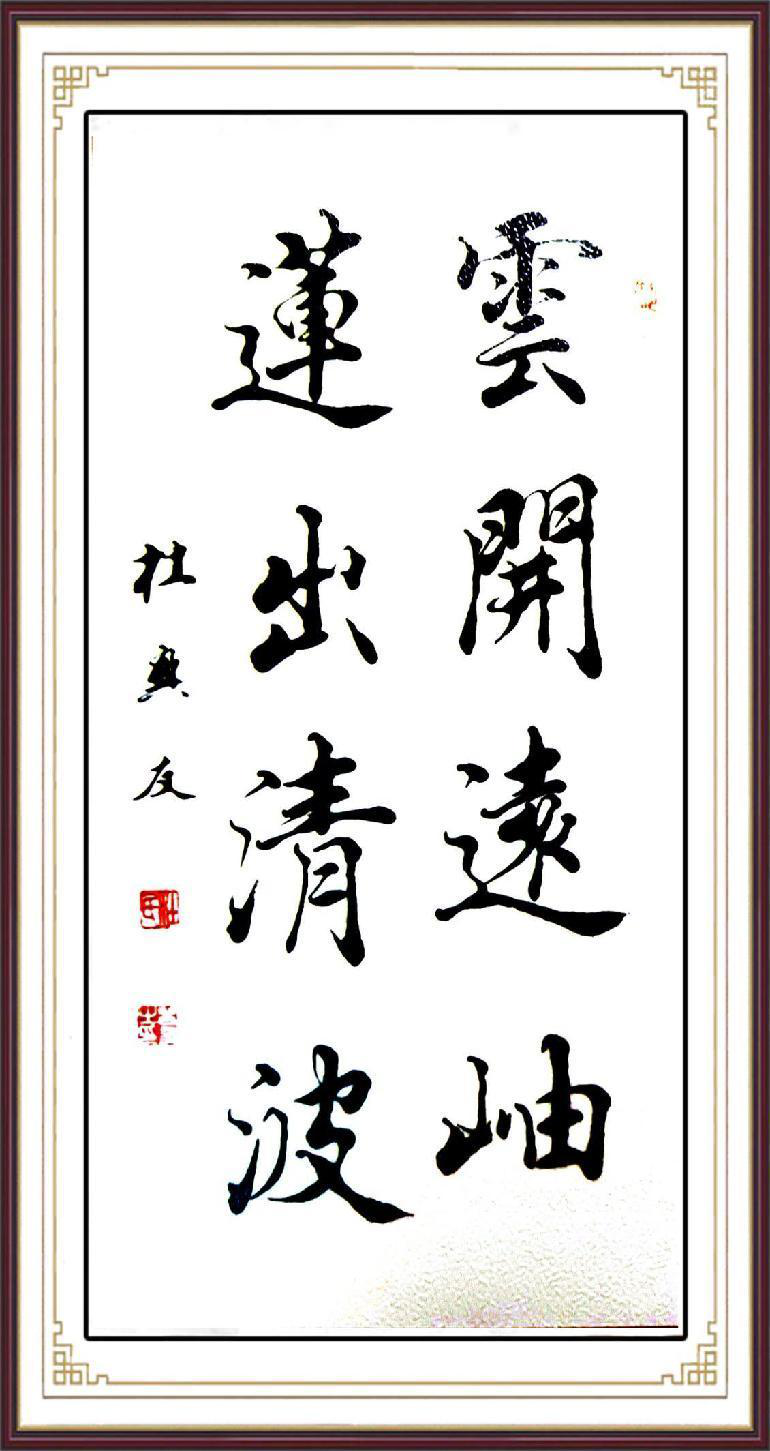 雲開遠岫
蓮出清波
杜興友